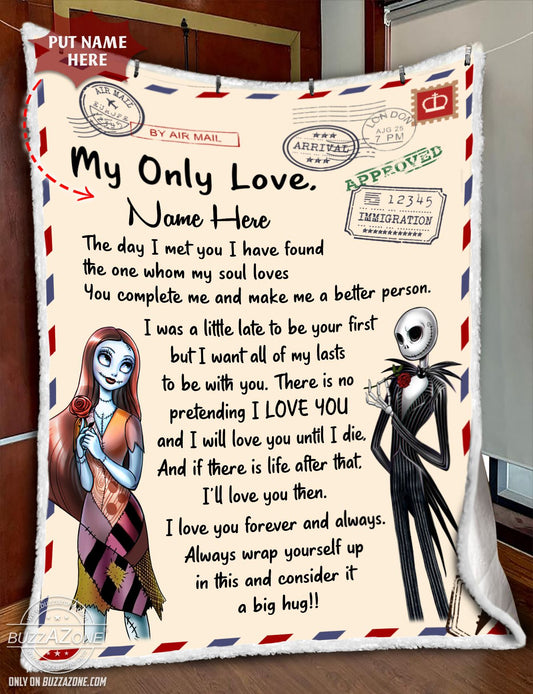 PUT NAME
HERE
AIR MAIL
BY AIR MAIL
ARRIVAL
LONDON
AUG 25
7 PM
APPROVED
12345
IMMIGRATION
My Only Love,
Name Here
The day I met you I have found
the one whom my soul loves
You complete me and make me a better person.
I was a little late to be your first
but I want all of my lasts
to be with you. There is no
pretending I LOVE YOU
and I will love you until I die,
And if there is life after that,
I'll love you then.
I love you forever and always.
Always wrap yourself up
in this and consider it
a big hug!!
BUZZAZONE
ONLY ON BUZZAZONE.COM